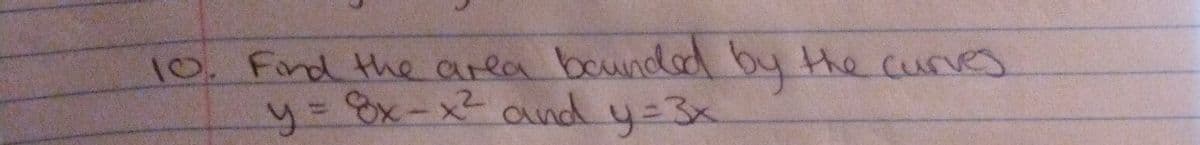 10. Find the area bounded by the curves
y = 8x - x² and y = 3x